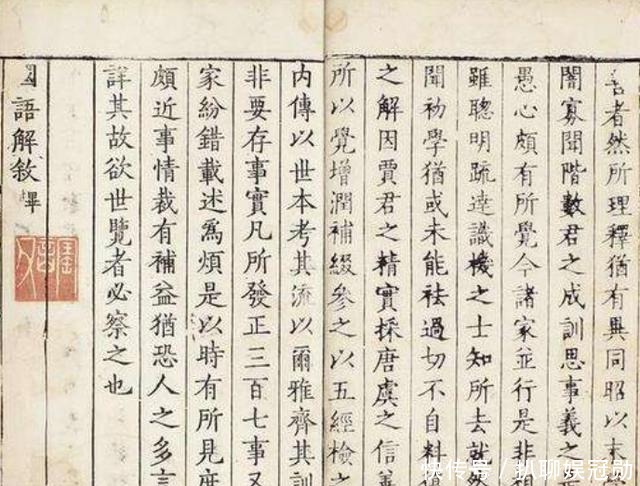 善者然所理釋猶有異同昭以末
闇寡聞階數君之成訓思事義之
愚心頗有所覺今諸家並行是非
雖聰明疏達識機之士知所去就然
聞初學猶或未能祛過切不自料
之解因賈君之精實採唐虞之信善
所以覺增潤補綴參之以五經檢之
內傳以世本考其流以爾雅齊其訓
非要存事實凡所發正三百七事又
家紛錯載述爲煩是以時有所見庶
頗近事情裁有補益猶恐人之多言
詳其故欲世覽者必察之也
國語解敘畢
快传号 / 扒聊娱冠勋